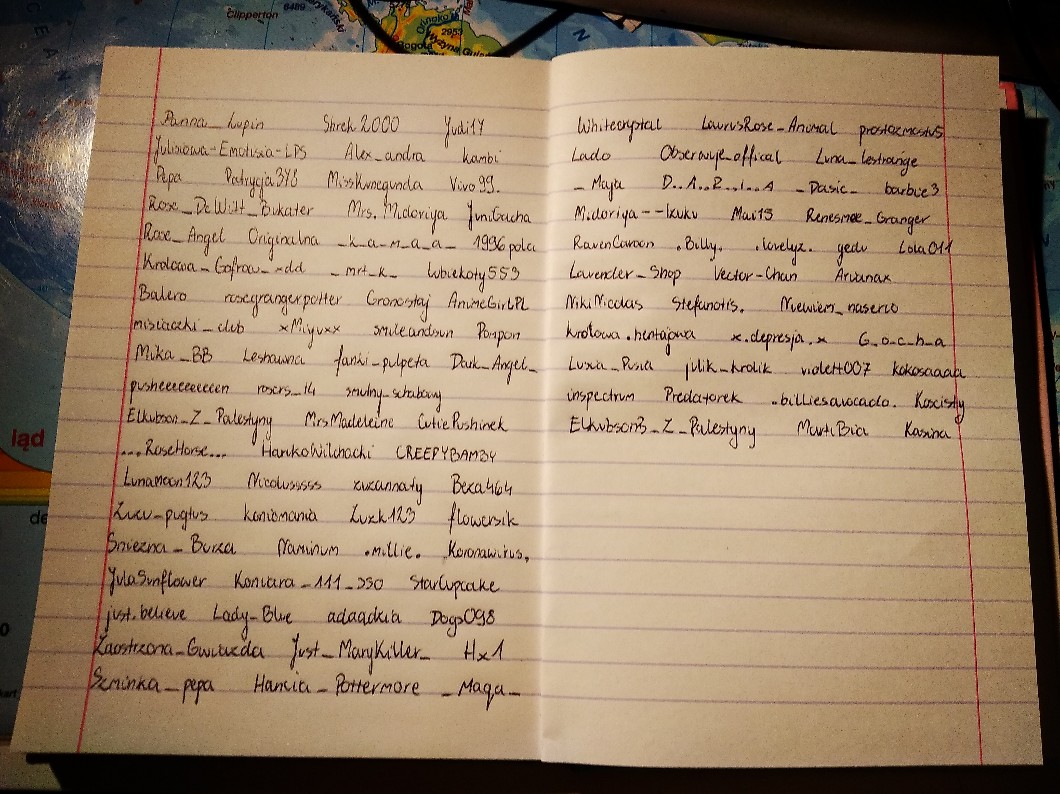 Clipperton
6489
2953
Bogota
Panna_Lupin Shrek2000 Judi17
Julisiowa-Emotisia-LPS Alex_andra kambi
Pepa Patrycja376 MissKunegunda Vivo99.
Rose_DeWitt_Bukater Mrs.Midoriya JuniGacha
Rose_Angel Originalna _k_a_m_a_a_ 1996pola
Krolowa_Gofrow_xdd _mrt_k_ lubiekoty553
Balero rosegrangerpotter Gronostaj AnimeGirlPL
misiaczki_club xMiyuxx smileandsun Pompon
Mika_BB Leshawna fanki-pulpeta Dark_Angel_
pusheeeeeeeeen rosers_14 smutny_schabowy
Elkubson_Z_Palestyny MrsMadeleine CutiePushinek
...RoseHorse... HankoWilchacki CREEPYBAM34
LunaMoon123 Nicolusssss zuzannaty Beza464
Zuzu-puglus koniomania Zuzk123 flowersik
Sniezna_Burza Naminum .millie. Koronawirus,
JulaSunflower Koniara_111_JSO StarCupcake
just.believe Lady_Blue adaadkia Dogs098
Zaostrzona_Gwiazda Just_MaryKiller_ Hx1
Szminka_pepa Hancia_Pottermore _Maga_
Whitecryptal LaurusRose_Animal prostozmostu5
Lado Obserwuje_offical Luna_lestrange
_Maja D..A..R..I..A _Dasic_ barbie3
Midoriya--Izuku Mai15 Renesmee_Granger
RavenCaroon .Billy. .lovelyx. yedu Lola011
Lavender_Shop Vector-Chan Arivanax
NikiNicolas Stefanotis. Niewiem_naserio
krolowa.hentajowa x.depresja.x G_o_c_h_a
Lusia_Pusia julik_krolik violett007 kokosaaaa
inspectrum Predatorek .billiesavocado. Koscisty
Elkubson3_Z_Palestyny MartiBia Kasina
ląd